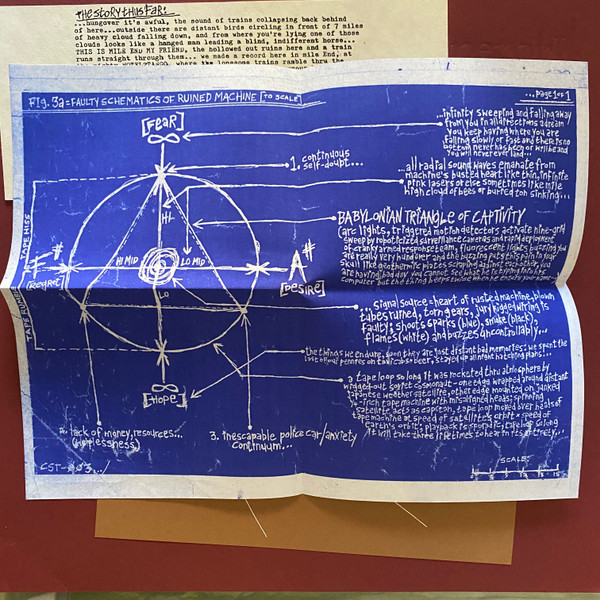 the story thus far:
...hungover it's awful, the sound of trains collapsing back behind
of here...outside there are distant birds circling in front of 7 miles
of heavy cloud falling down, and from where you're lying one of those
clouds looks like a hanged man leading a blind, indifferent horse...
THIS IS MILE END MY FRIEND, the hollowed out ruins here and a train
runs straight through them... we made a record here in mile End, at
where the lonesome trains ramble thru the
Fig. 3a = FAULTY SCHEMATICS OF RUINED MACHINE [to SCALE]
...page 1 of 1
[FeaR]
...infinity sweeping and falling away
from you in all directions a dream
you keep having where you are
falling slowly or fast and there is no
you will never ever land...
1. continuous
self-doubt...
...all radial sound waves emanate from
machine's busted heart like thin, infinite
pink lasers or else sometimes like mile
high clouds of bees or buried ton sinking...
HI
BABYLONIAN TRIANGLE OF CAPTIVITY
(arc lights, triggered motion detectors activate nine-grid
sweep by roboticized surveillance cameras and rapid deployment
of cranky armed response team, fluorescent lights buzzing you
are really very hungover and the buzzing puts this pain in your
skull like geothermic plates scraping against each other, you
are having a bad day you cannot see what he is typing into his
computer but the thing beeps twice when he
TAPE HISS
HI MID
LO MID
F#
[DESIRE]
A#
LO
signal source = heart of rusted machine, blown
tubes ruined, torn gears, jury rigged wiring is
faulty; shoots sparks (blue), smoke (black),
flames (white) and buzzes uncontrollably...
the things we endure, soon they are just distant bad memories: we spent the
last of our pennies on tobacco + beer, stayed up all night hatching plans...
∞
[HOPE]
a tape loop so long it was rocketed thru atmosphere by
wigged-out soviet cosmonaut - one edge wrapped around distant
japanese weather satellite, other edge mounted on junked
1/4-inch tape machine with misaligned heads; spinning
satellite acts as capstan, tape loop moves over heads of
tape machine at speed of satellite's orbit x speed of
earth's orbit; playback is sporadic, tape loop so long
it will take three lifetimes to hear in its entirety...
2. lack of money, resources...
(hopelessness)
3. inescapable police car/anxiety
continuum...
CST-003...
SCALE: